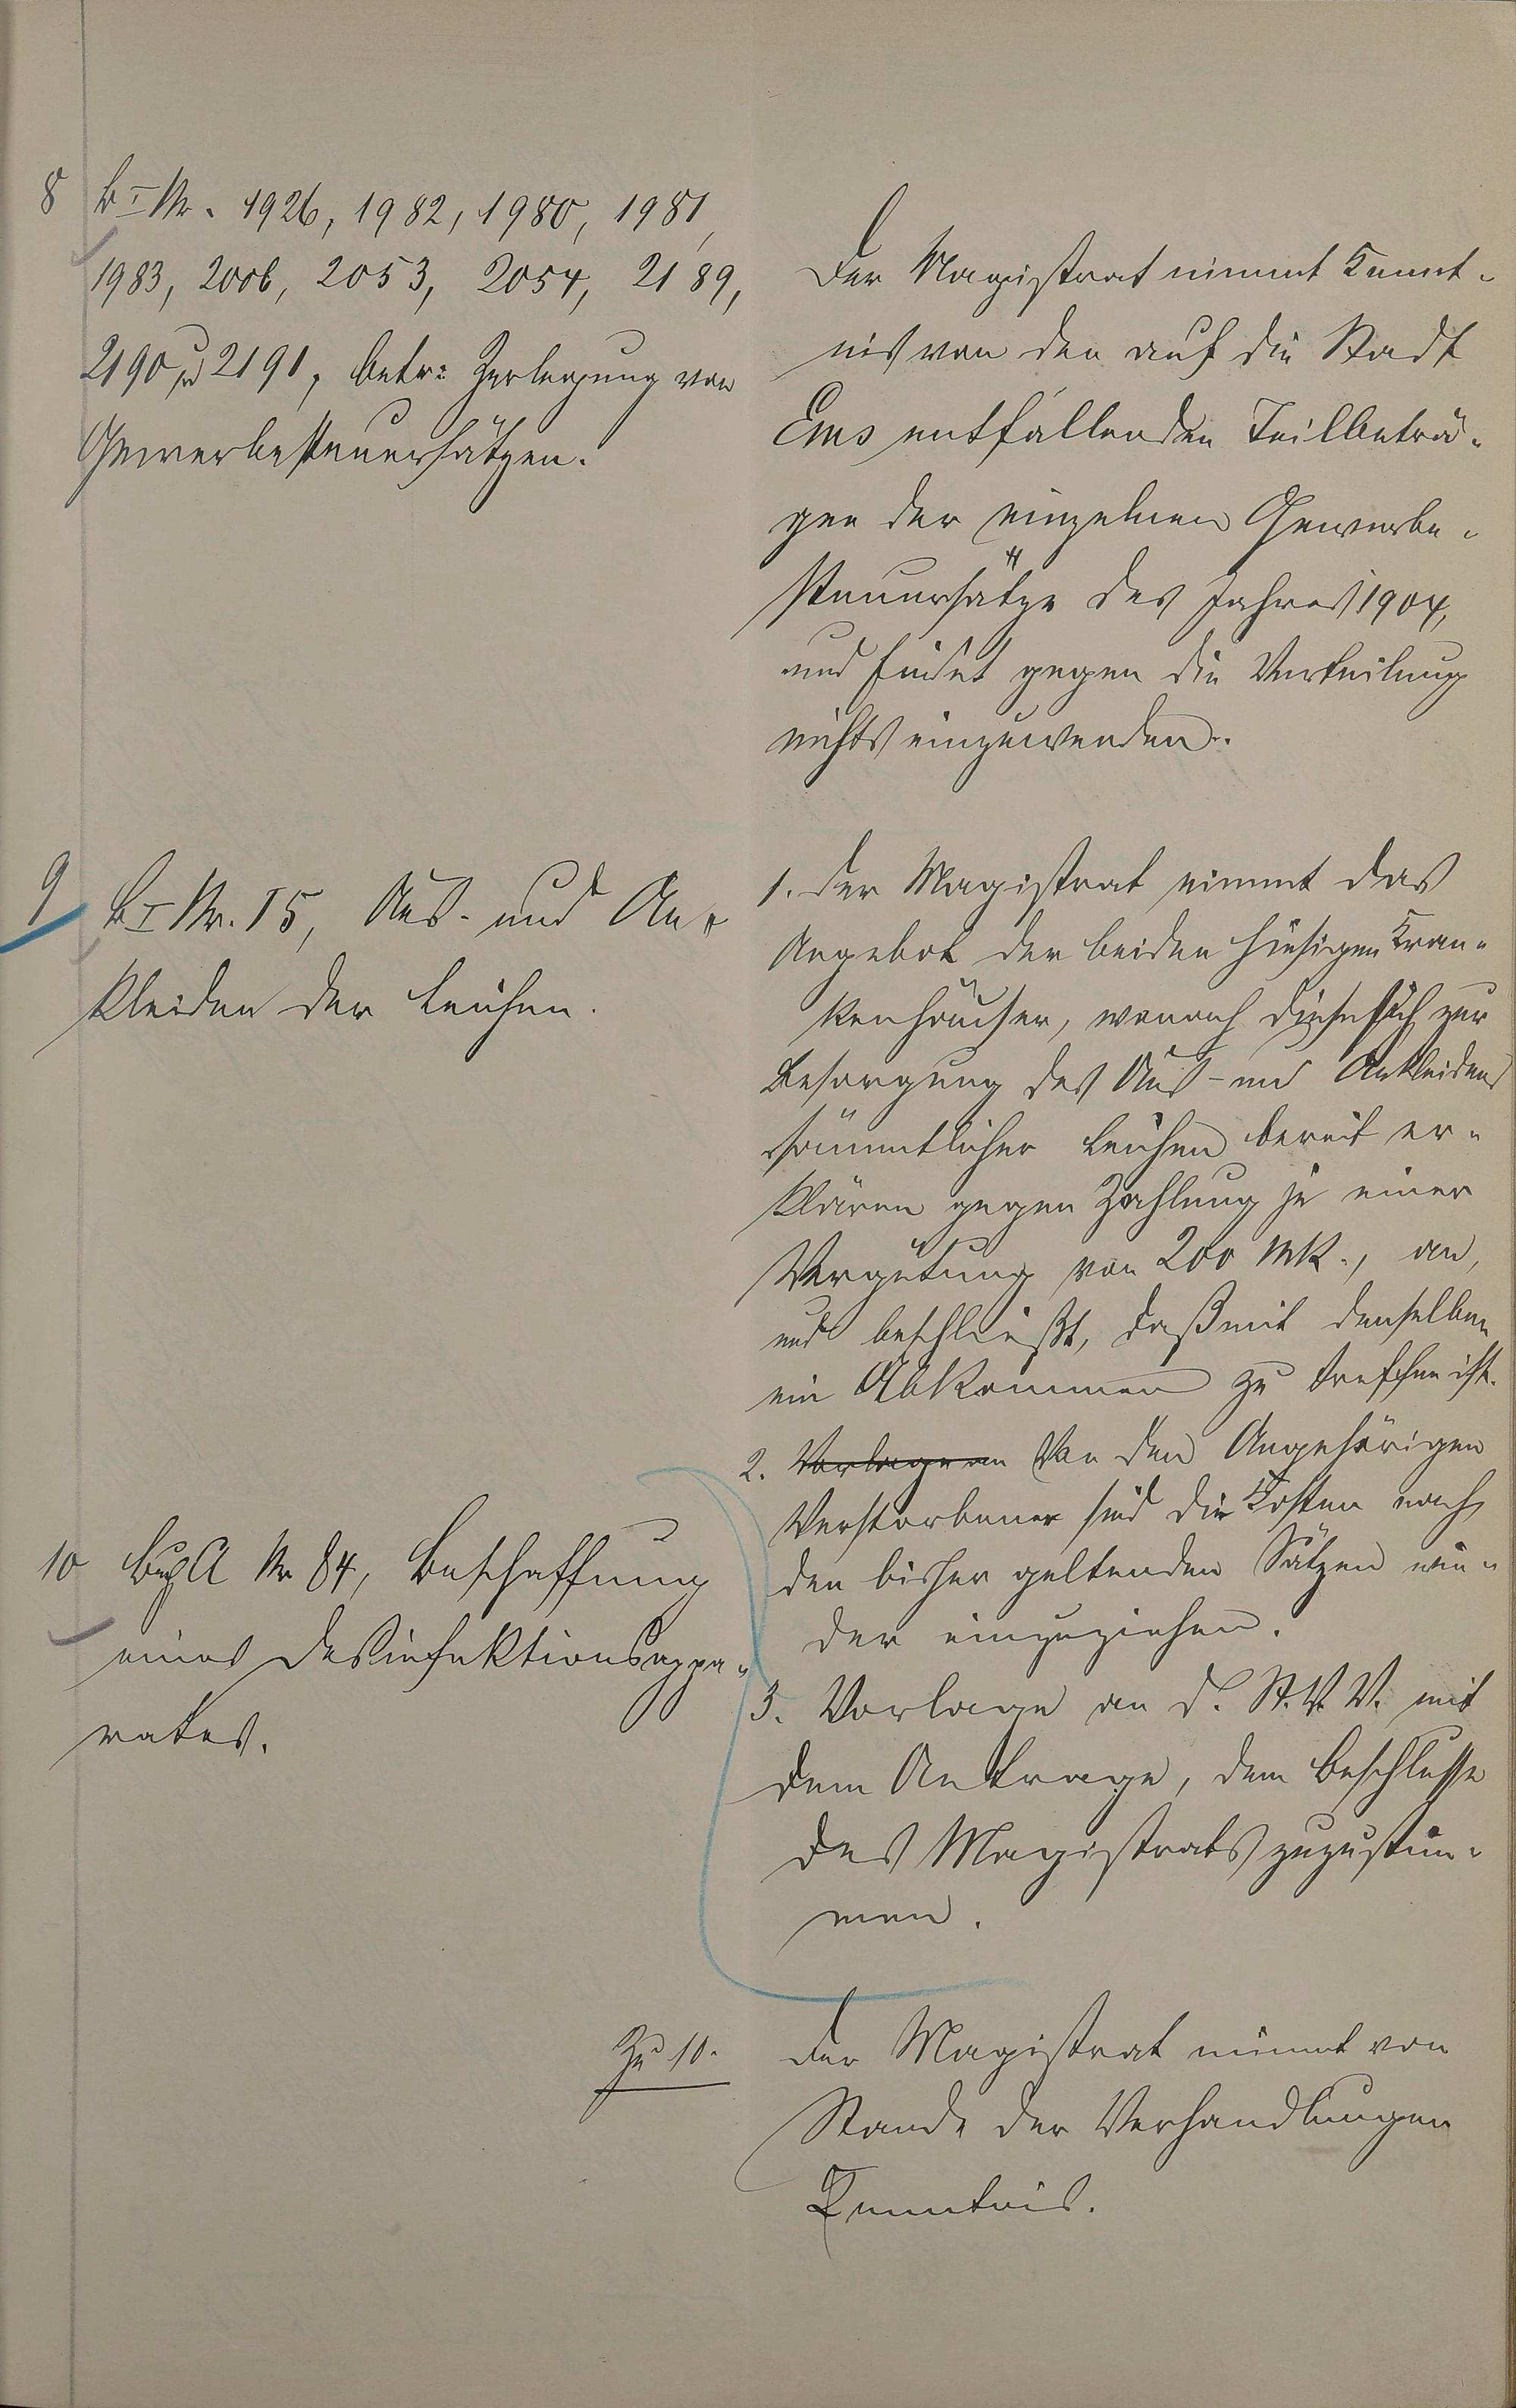 8 B I Nr. 1926, 1982, 1980, 1981,
1983, 2006, 2053, 2054, 2189,
2190 u 2191, betr: Zerlegung von
Gewerbesteuersätzen.
Der Magistrat nimmt Kennt-
nis von den auf die Stadt
Ems entfallenden Teilbeträ-
gen der einzelnen Gewerbe-
steuersätze des Jahres 1904,
und findet gegen die Verteilung
nichts einzuwenden.
9 B I Nr. 15, Aus- und An-
kleiden der Leichen.
1. Der Magistrat nimmt das
Angebot der beiden hiesigen Kran-
kenhäuser, wonach diese sich zur
Besorgung des Aus- und Ankleidens
sämmtlicher Leichen bereit er-
klären gegen Zahlung je einer
Vergütung von 200 Mk., an,
und beschließt, daß mit denselben
ein Abkommen zu treffen ist.
2. Vorlage an Von den Angehörigen
Verstorbener sind die Kosten nach
den bisher geltenden Sätzen wie-
der einzuziehen.
3. Vorlage an d. St. V. V. mit
dem Antrage, dem Beschlusse
des Magistrats zuzustim-
men.
10 A Nr 84, Beschaffung
eines Desinfektionsappa-
rates.
Zu 10.
Der Magistrat nimmt von
Stande der Verhandlungen
Kenntnis.